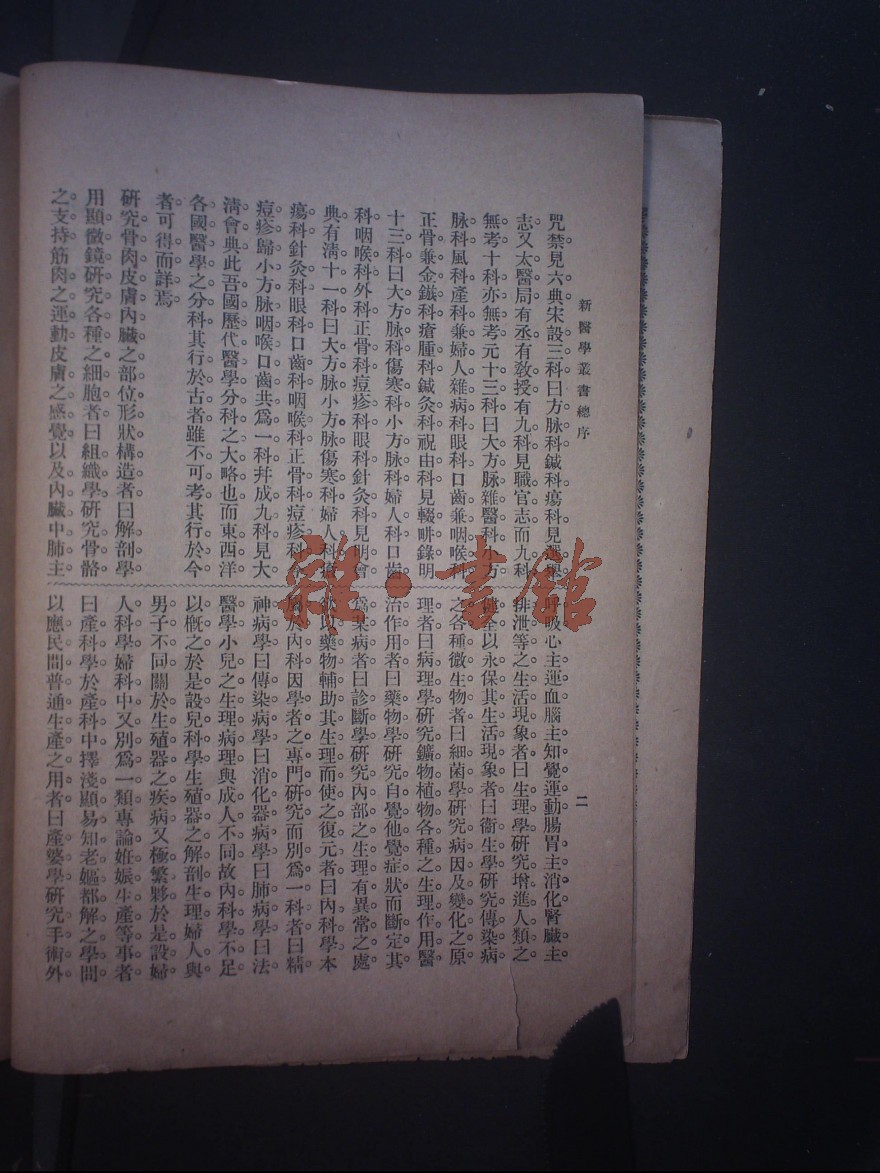 新醫學叢書總序
二
咒禁見六典宋設三科曰方脉科鍼科瘍科見選舉
志又太醫局有丞有敎授有九科見職官志而九科
無考十科亦無考元十三科曰大方脉雜醫科小方
脉科風科產科兼婦人雜病科眼科口齒兼咽喉科
正骨兼金鏃科瘡腫科鍼灸科祝由科見輟畊錄明
十三科曰大方脉科傷寒科小方脉科婦人科口齒
科咽喉科外科正骨科痘疹科眼科針灸科見明會
典有淸十一科曰大方脉小方脉傷寒科婦人科瘡
瘍科針灸科眼科口齒科咽喉科正骨科痘疹科今
痘疹歸小方脉咽喉口齒共爲一科幷成九科見大
淸會典此吾國歷代醫學分科之大略也而東西洋
各國醫學之分科其行於古者雖不可考其行於今
者可得而詳焉
硏究骨肉皮膚內臟之部位形狀構造者曰解剖學
用顯微鏡硏究各種之細胞者曰組織學硏究骨骼
之支持筋肉之運動皮膚之感覺以及內臟中肺主
呼吸心主運血腦主知覺運動腸胃主消化腎臟主
排泄等之生活現象者曰生理學硏究增進人類之
健全以永保其生活現象者曰衞生學硏究傳染病
之各種微生物者曰細菌學硏究病因及變化之原
理者曰病理學硏究鑛物植物各種之生理作用醫
治作用者曰藥物學硏究自覺他覺症狀而斷定其
爲某病者曰診斷學硏究內部之生理有異常之處
欲以藥物輔助其生理而使之復元者曰內科學本
屬於內科因學者之專門硏究而別爲一科者曰精
神病學曰傳染病學曰消化器病學曰肺病學曰法
醫學小兒之生理病理與成人不同故內科學不足
以槪之於是設兒科學生殖器之解剖生理婦人與
男子不同關於生殖器之疾病又極繁夥於是設婦
人科學婦科中又別爲一類專論姙娠生產等事者
曰產科學於產科中擇淺顯易知老嫗都解之學問
以應民間普通生產之用者曰產婆學硏究手術外
雜·書館